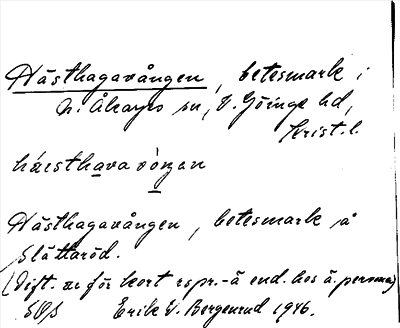 Hästhagavången, betesmark i
N. Åkarps sn, V. Göinge hd,
Krist. l.
háesthava vòngen
Hästhagavången, betesmark å
Slättaröd.
(Dift. ae för kort ä spr.- å end. hos ä. persona)
Erik V. Bergerud 1946.